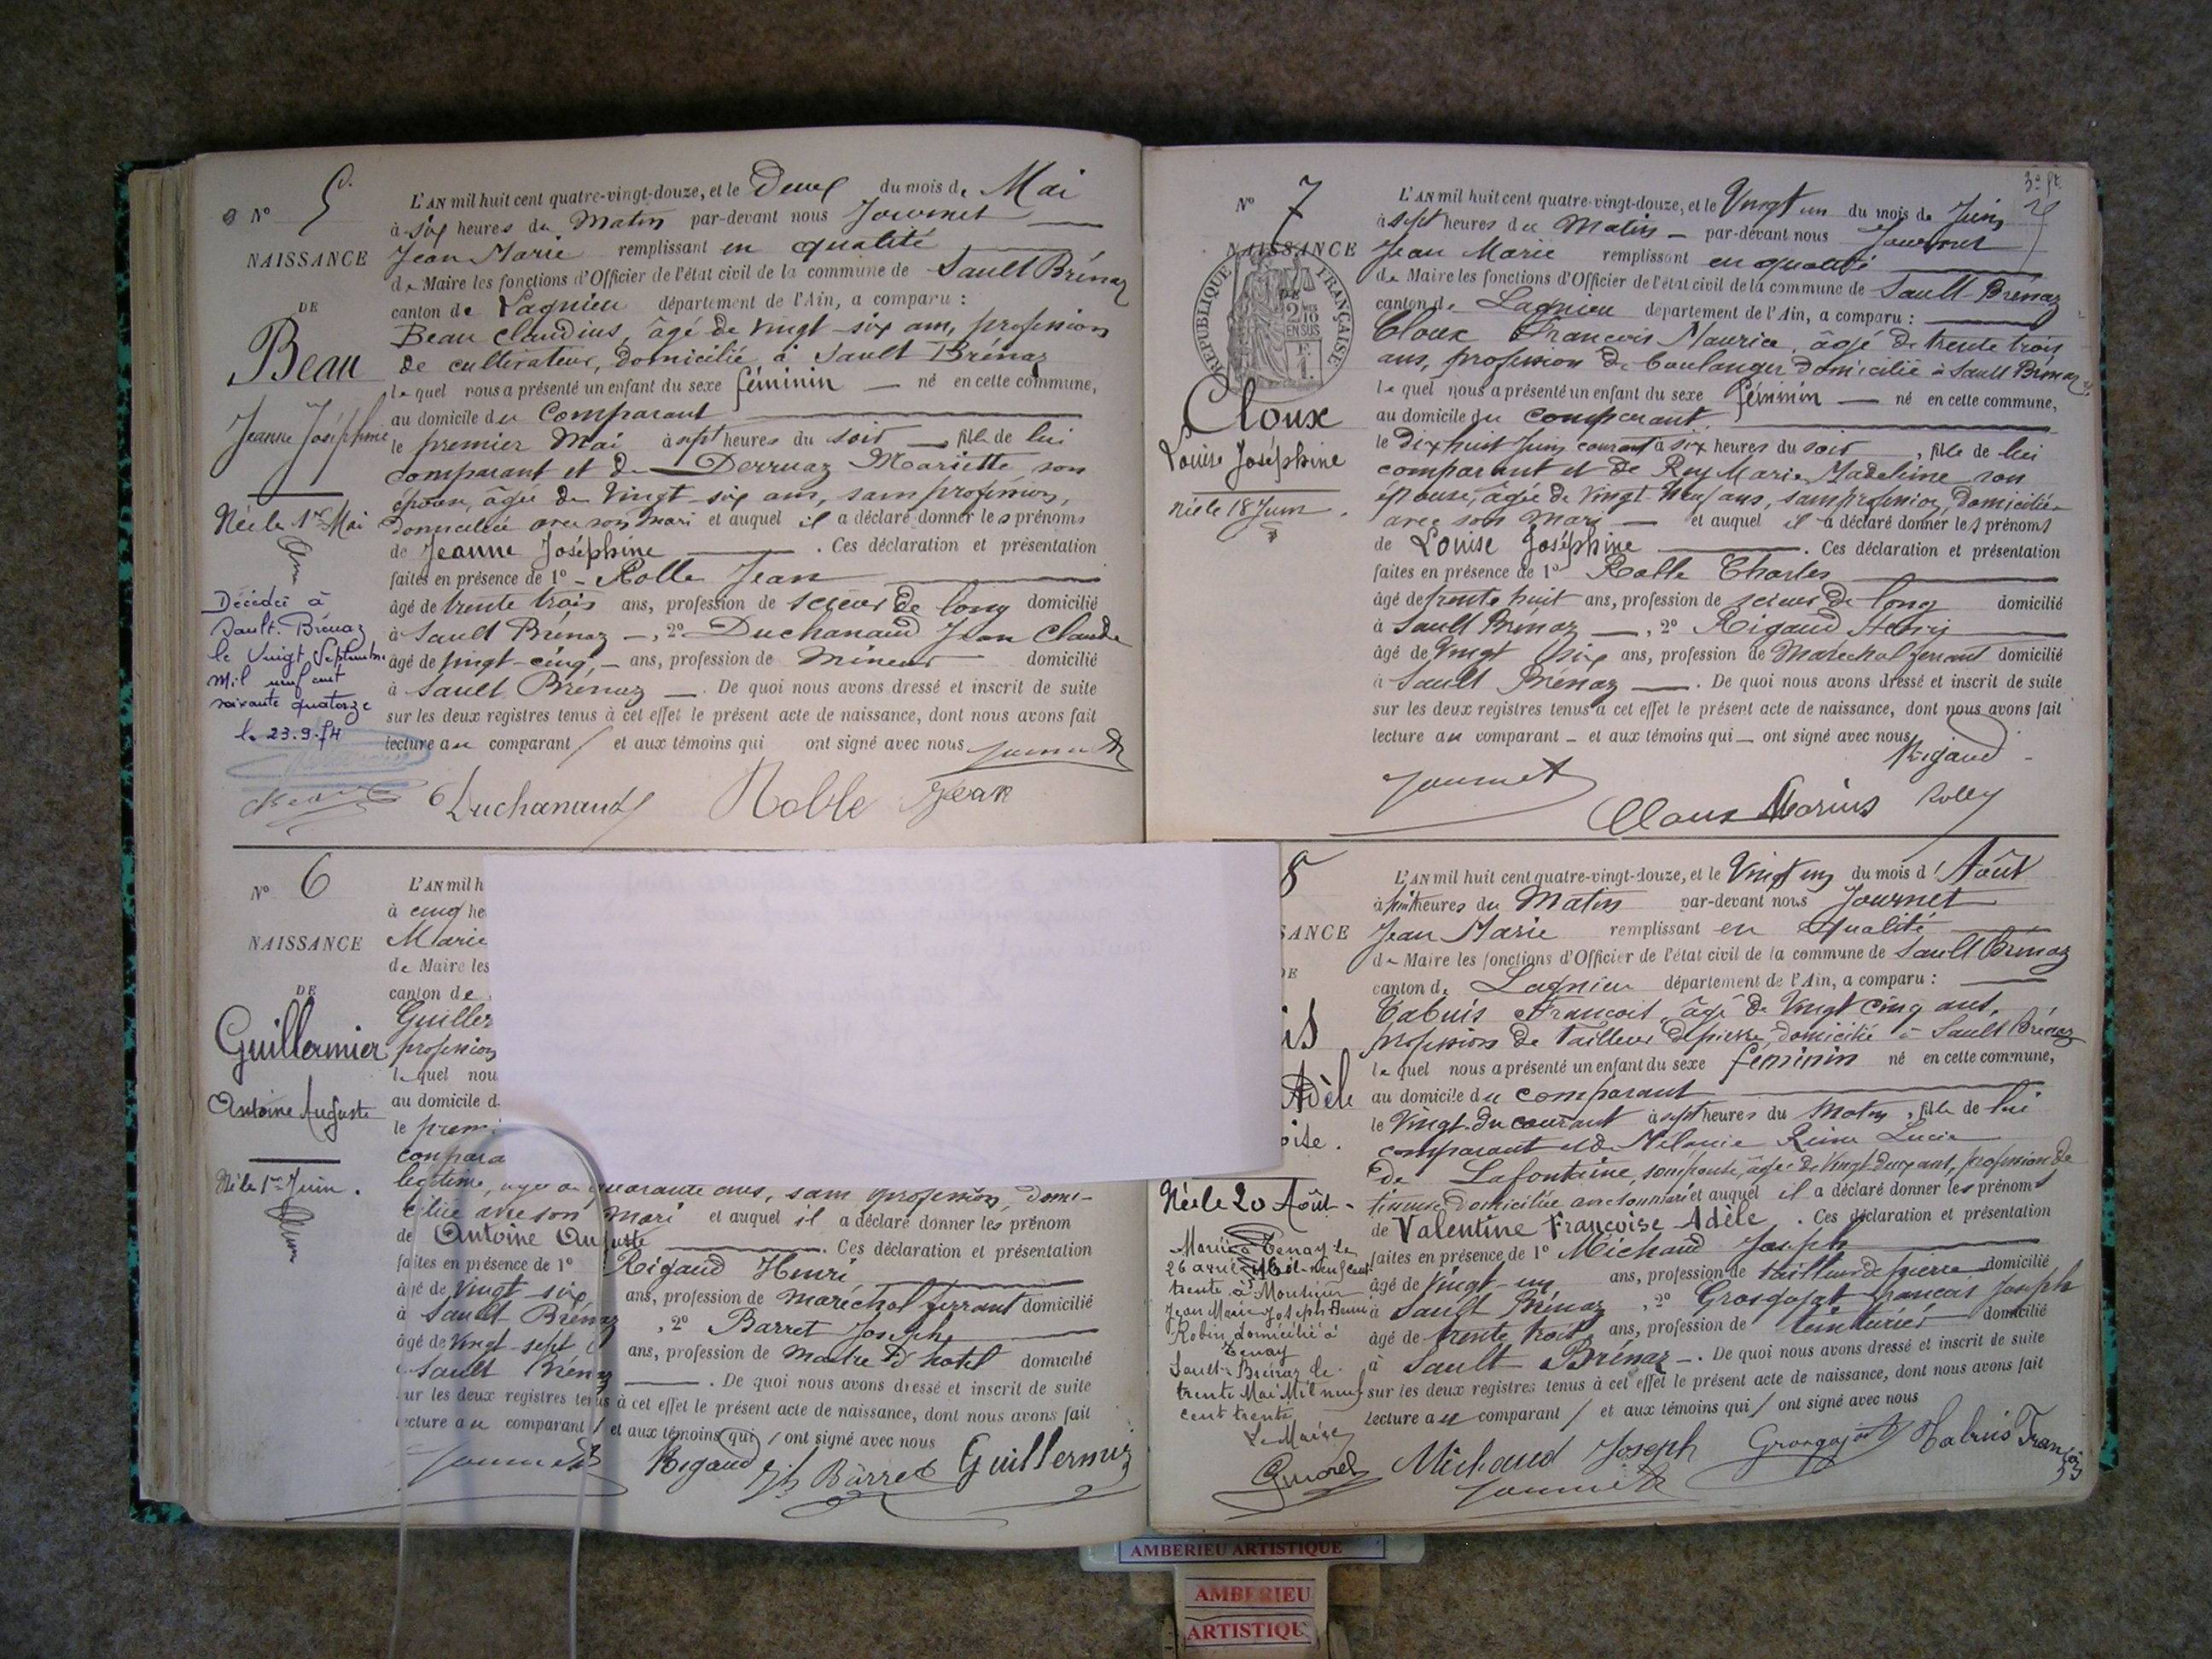 N° 5
NAISSANCE
DE
Beau
Jeanne Joséphine
Née le 1er Mai
Décédée à
Sault-Brénaz
le Vingt Septembre
Mil neuf cent
soixante quatorze
le 23.9.74
L'AN mil huit cent quatre-vingt-douze, et le Deux du mois de Mai
à six heures du Matin par-devant nous Journet
Jean Marie remplissant en qualité
de Maire les fonctions d'Officier de l'état civil de la commune de Sault Brénaz
canton de Lagnieu département de l'Ain, a comparu :
Beau Claudius, âgé de vingt-six ans, profession
de cultivateur, domicilié à Sault Brénaz
lequel nous a présenté un enfant du sexe féminin né en cette commune,
au domicile du Comparant
le premier Mai à sept heures du soir fille de lui
comparant et de Derruaz Mariette son
épouse, âgée de Vingt-six ans, sans profession,
domiciliée avec son mari et auquel il a déclaré donner les prénoms
de Jeanne Joséphine . Ces déclaration et présentation
faites en présence de 1° Rolle Jean
âgé de trente trois ans, profession de scieur de long domicilié
à Sault Brénaz , 2° Duchanaud Jean Claude
âgé de vingt-cinq ans, profession de Mineur domicilié
à Sault Brénaz . De quoi nous avons dressé et inscrit de suite
sur les deux registres tenus à cet effet le présent acte de naissance, dont nous avons fait
lecture au comparant / et aux témoins qui ont signé avec nous Journet
Beau Duchanaud Rolle Jean
N° 6
NAISSANCE
DE
Guillermier
Antoine Auguste
Né le 1er Juin.
L'AN mil h
à cinq he
Marie
de Maire les
canton de
Guiller
profession
lequel nou
au domicile d
le prem
compara
legitime, agée de quarante ans, sans profession, domi-
ciliée avec son mari et auquel il a déclaré donner les prénom
de Antoine Auguste . Ces déclaration et présentation
faites en présence de 1° Rigaud Henri
âgé de vingt-six ans, profession de maréchal ferrant domicilié
à Sault Brénaz , 2° Barret Joseph
âgé de vingt-sept ans, profession de maitre d'hotel domicilié
à Sault Brénaz . De quoi nous avons dressé et inscrit de suite
sur les deux registres tenus à cet effet le présent acte de naissance, dont nous avons fait
lecture au comparant / et aux témoins qui / ont signé avec nous
Journet Rigaud Jh Barret Guillermier
N° 7
NAISSANCE
DE
REPUBLIQUE FRANÇAISE
2/10 EN SUS
Cloux
Louise Joséphine
Née le 18 Juin.
L'AN mil huit cent quatre-vingt-douze, et le Vingt un du mois de Juin
à sept heures du Matin par-devant nous Journet
Jean Marie remplissant en qualité
de Maire les fonctions d'Officier de l'état civil de la commune de Sault-Brénaz
canton de Lagnieu département de l'Ain, a comparu :
Cloux François Maurice, âgé de trente trois
ans, profession de boulanger domicilié à Sault Brénaz
lequel nous a présenté un enfant du sexe féminin né en cette commune,
au domicile du comparant
le dix huit Juin courant à six heures du soir , fille de lui
comparant et de Rey Marie Madeleine son
épouse, âgée de vingt-neuf ans, sans profession, domiciliée
avec son mari et auquel il a déclaré donner les prénoms
de Louise Joséphine . Ces déclaration et présentation
faites en présence de 1° Rolle Charles
âgé de trente huit ans, profession de scieur de long domicilié
à Sault Brénaz , 2° Rigaud Henri
âgé de Vingt six ans, profession de Maréchal ferrant domicilié
à Sault Brénaz . De quoi nous avons dressé et inscrit de suite
sur les deux registres tenus à cet effet le présent acte de naissance, dont nous avons fait
lecture au comparant et aux témoins qui ont signé avec nous
Rigaud
Journet Cloux Marius
8
SANCE
DE
is
Adèle
oise.
Née le 20 Août
Mariée à Tenay le
26 avril Mil-neuf cent
trente à Monsieur
Jean Marie Joseph Henri
Robin, domicilié à
Tenay
Sault-Brénaz, le
trente Mai Mil neuf
cent trente
Le Maire
L'AN mil huit cent quatre-vingt-douze, et le Vingt un du mois d'Août
à huit heures du Matin par-devant nous Journet
Jean Marie remplissant en qualité
de Maire les fonctions d'Officier de l'état civil de la commune de Sault Brénaz
canton de Lagnieu département de l'Ain, a comparu :
Tabuis François, âgé de Vingt cinq ans,
profession de Tailleur de pierre, domicilié à Sault Brénaz
lequel nous a présenté un enfant du sexe féminin né en cette commune,
au domicile du comparant
le Vingt du courant à sept heures du matin , fille de lui
comparant et de Mélanie Reine Lucie
de Lafontaine, son épouse, âgée de vingt-deux ans, profession de
tisseuse domiciliée avec son mari et auquel il a déclaré donner les prénoms
de Valentine Françoise Adèle . Ces déclaration et présentation
faites en présence de 1° Michaud Joseph
âgé de vingt-un ans, profession de tailleur de pierre domicilié
à Sault Brénaz , 2° Grosgojat François Joseph
âgé de trente trois ans, profession de teinturier domicilié
à Sault Brénaz . De quoi nous avons dressé et inscrit de suite
sur les deux registres tenus à cet effet le présent acte de naissance, dont nous avons fait
lecture au comparant / et aux témoins qui / ont signé avec nous
Michaud Joseph Grosgojat Tabuis François
Journet
AMBERIEU ARTISTIQUE
AMBERIEU
ARTISTIQU